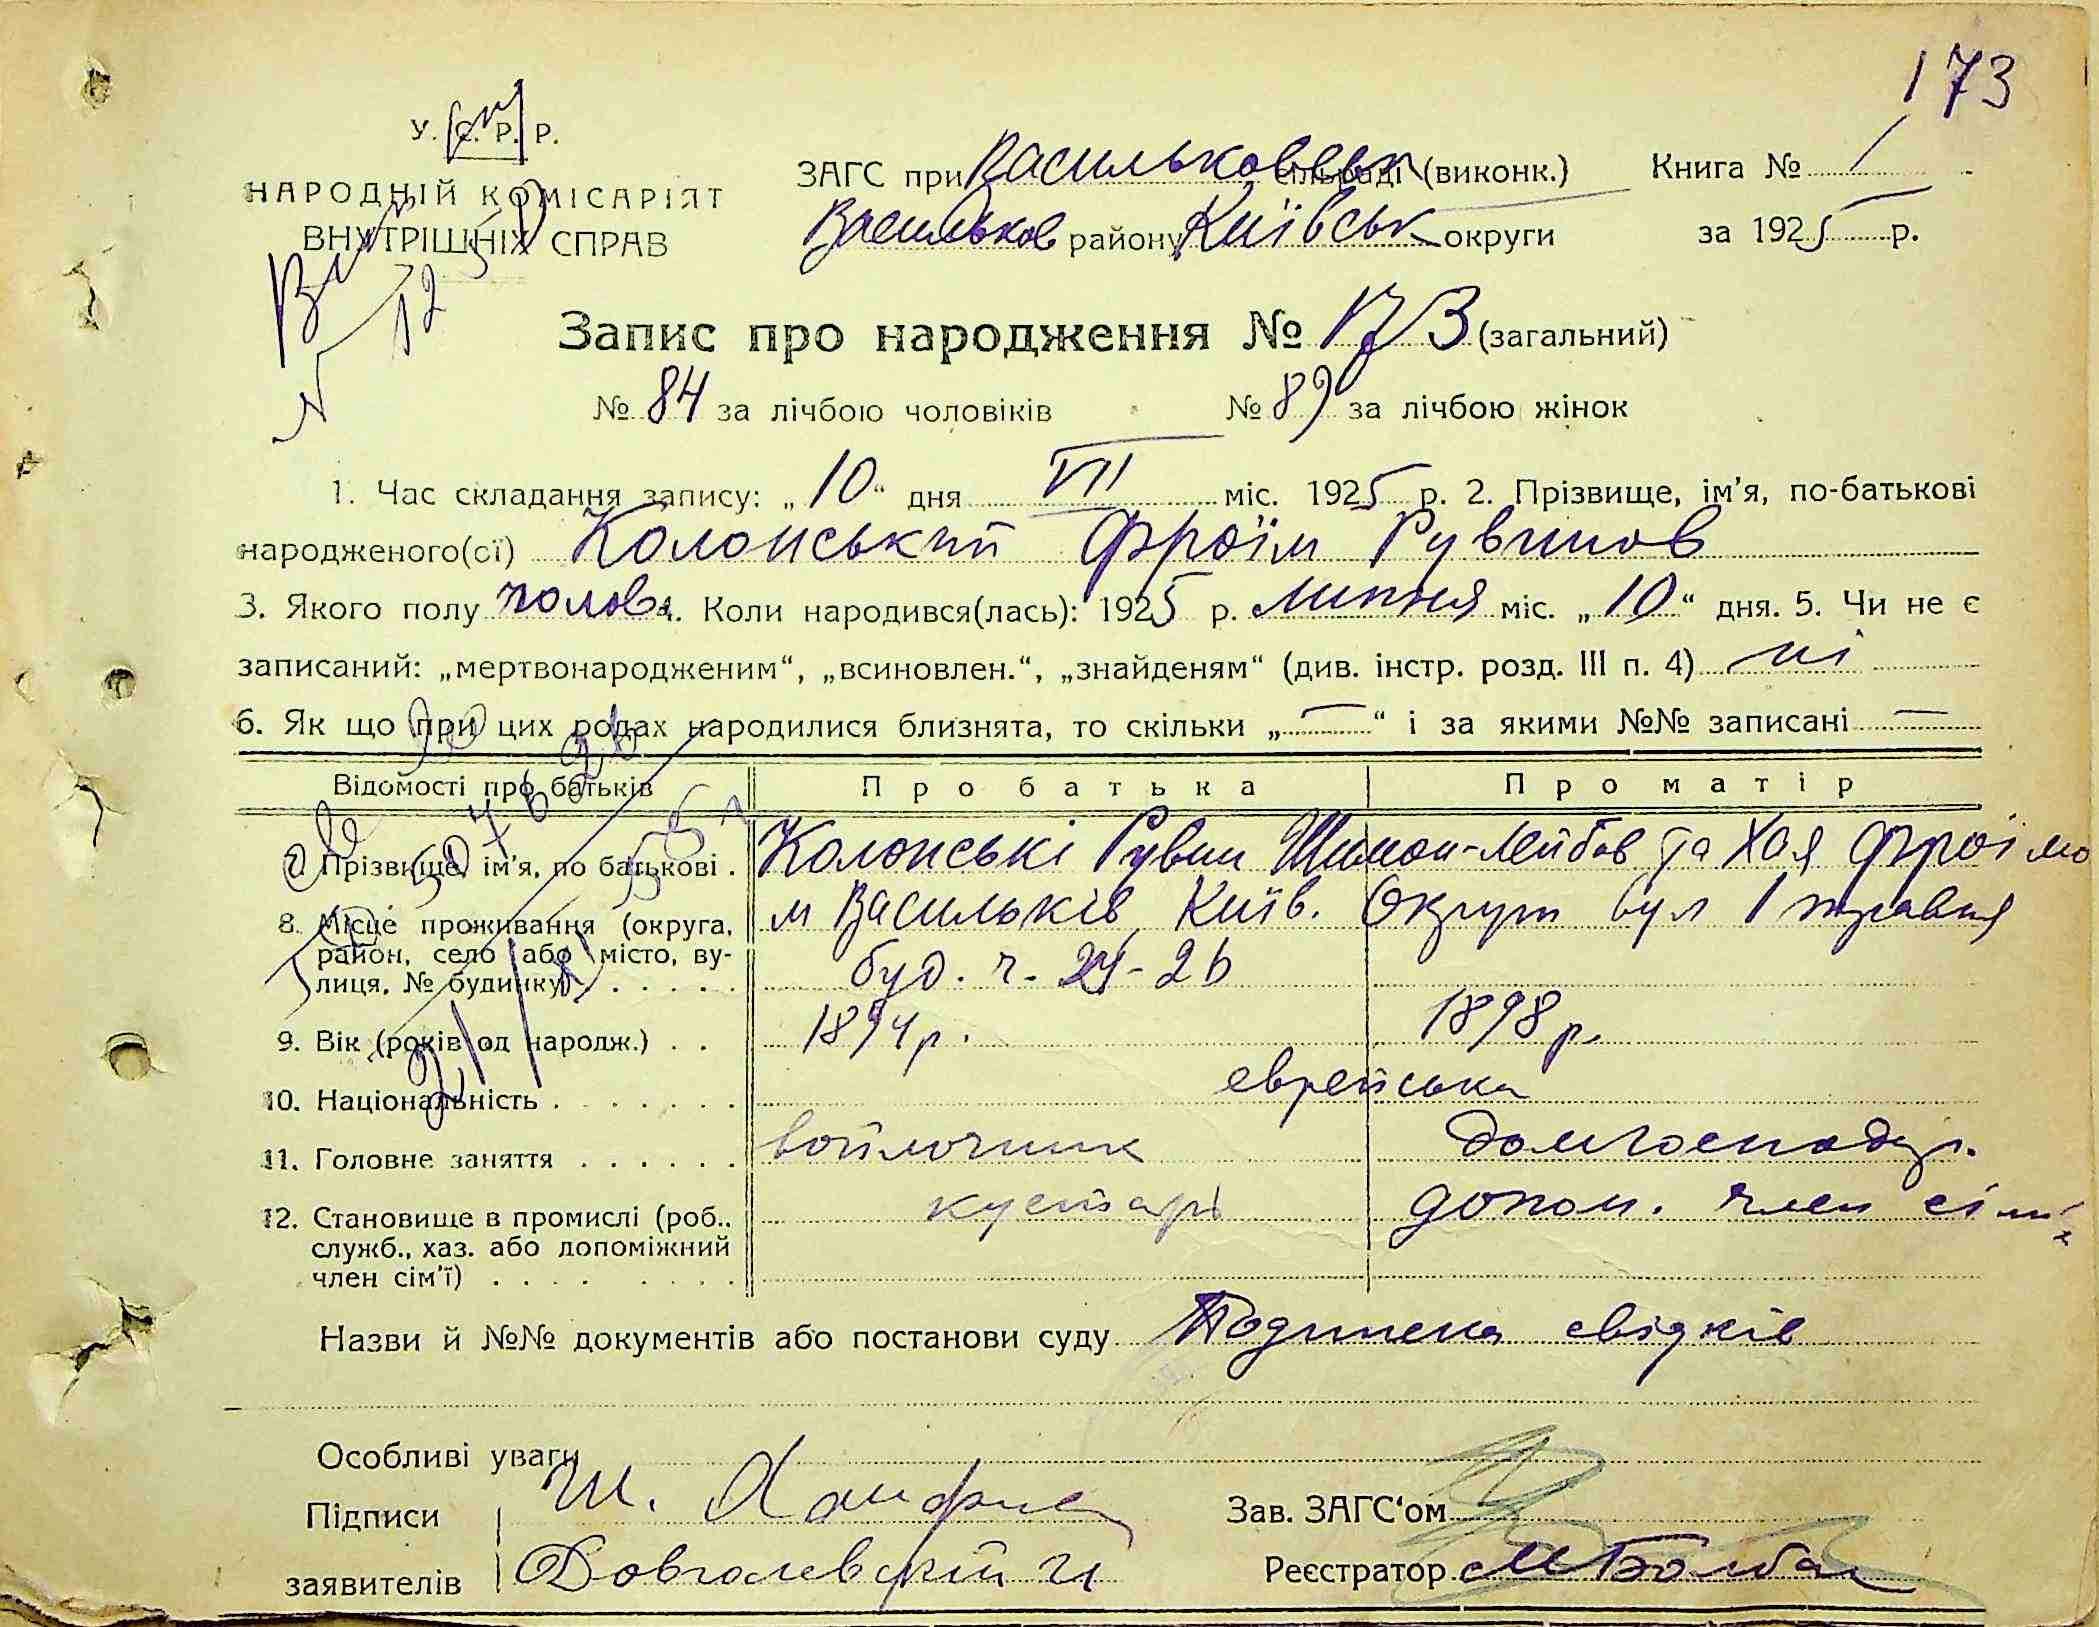 173
У. С. Р. Р.
НАРОДНІЙ КОМІСАРІЯТ
ВНУТРІШНІХ СПРАВ
ЗАГС при Васильковськ сільраді (виконк.) Книга № 1
Васильков району Київськ округи за 1925 р.
Запис про народження № 173 (загальний)
№ 84 за лічбою чоловіків № 89 за лічбою жінок
1. Час складання запису: „10“ дня VII міс. 1925 р. 2. Прізвище, ім'я, по-батькові
народженого(ої) Колонський Фроїм Рувинов
3. Якого полу чолов 4. Коли народився(лась): 1925 р. липня міс. „10“ дня. 5. Чи не є
записаний: „мертвонародженим“, „всиновлен.“, „знайденям“ (див. інстр. розд. III п. 4) ні
6. Як що при цих родах народилися близнята, то скільки „—“ і за якими №№ записані —
Відомості про батьків Про батька Про матір
7. Прізвище, ім'я, по батькові . Колонські Рувин Шимон-Лейбов та Хая Фроїмо
8. Місце проживання (округа, район, село або місто, вулиця, № будинку) . . . . . м Васильків Київ. Округи вул 1 травня
буд. ч. 24-26
9. Вік (років од народж.) . . 1894 р. 1898 р.
10. Національність . . . . . . . еврейська
11. Головне заняття . . . . . . войлочник домгосподар.
12. Становище в промислі (роб., служб., хаз. або допоміжний член сім'ї) . . . . . . . . кустарь допом. член сім'ї
Назви й №№ документів або постанови суду Подписка свідків
Особливі уваги
Підписи Ш.
заявителів
Зав. ЗАГС‘ом
Реєстратор